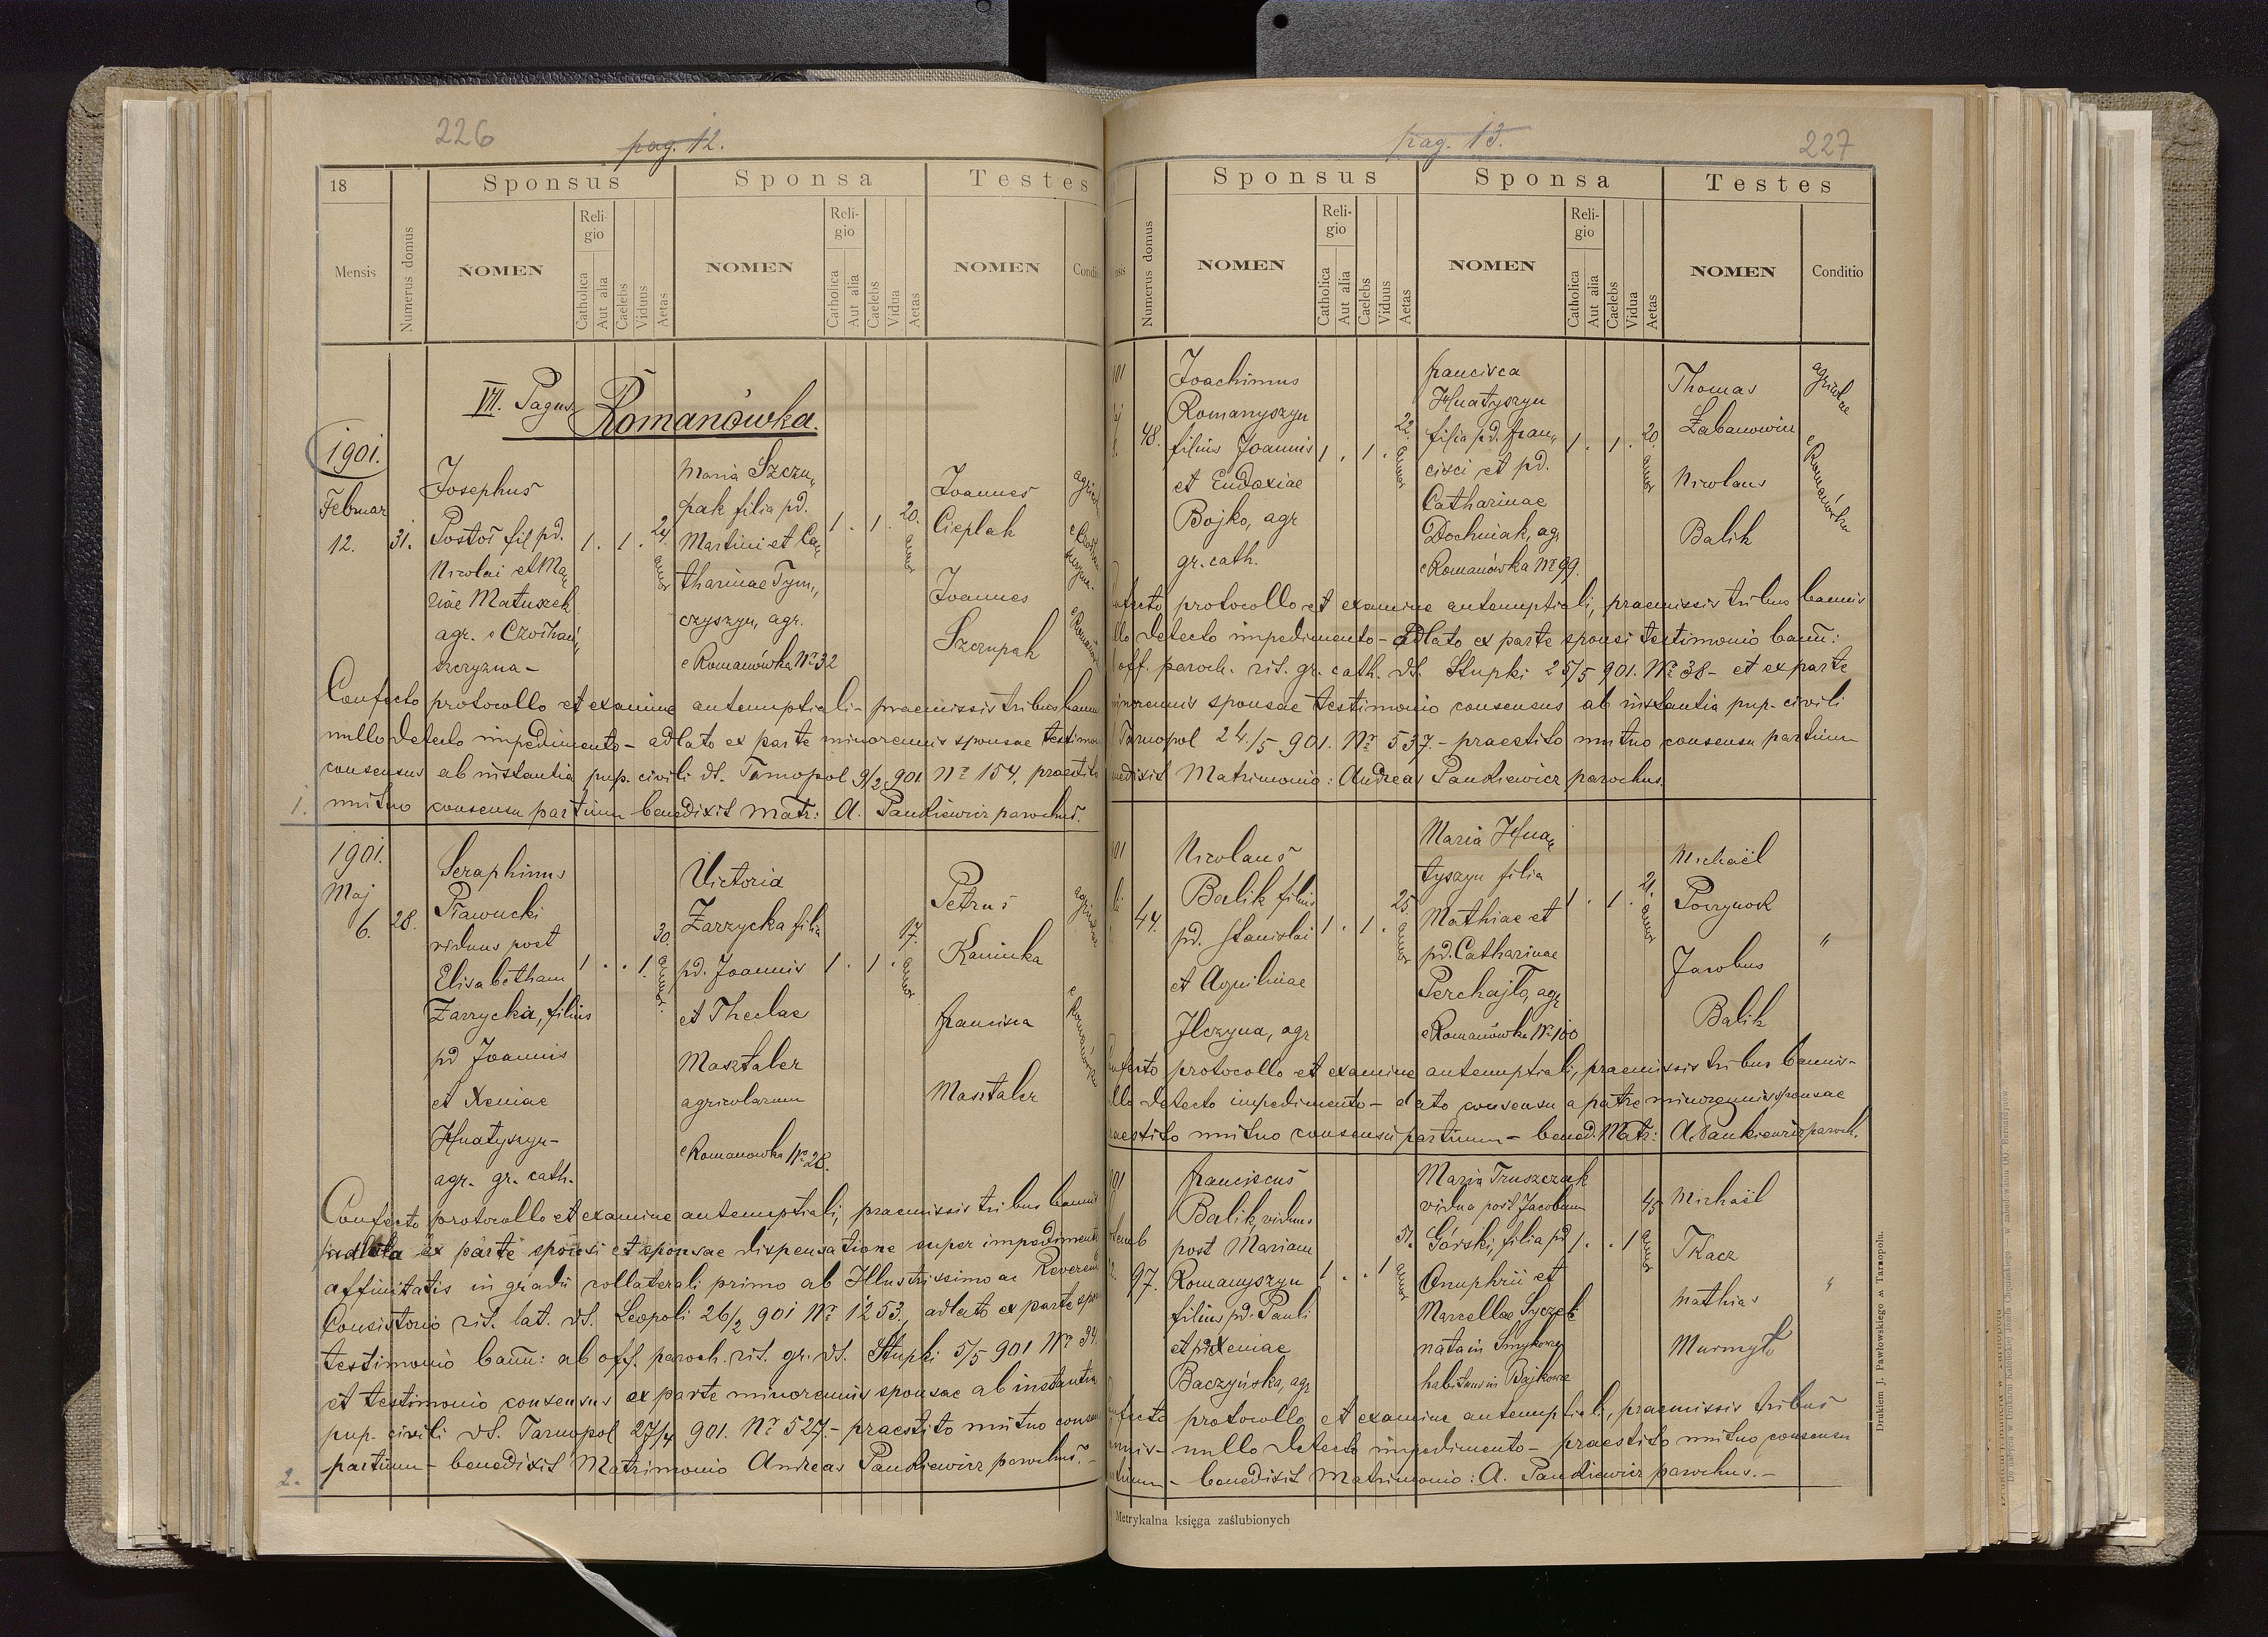 226
pag. 12.
18
Sponsus
Sponsa
Testes
Mensis
Numerus domus
NOMEN
Reli-
gio
Catholica
Aut alia
Caelebs
Viduus
Aetas
NOMEN
Reli-
gio
Catholica
Aut alia
Caelebs
Vidua
Aetas
NOMEN
Condi
VII. Pagus Romanówka.
1901.
Februar
12.
31.
Josephus
Postoł fil pd.
Nicolai et Ma„
riae Matuszek
agr.
szczyzna-
1. 1. 24. annor
Maria Szczu„
pak filia pd.
Martini et Ca„
tharinae Tym„
czyszyn, agr.
e Romanówka Nr 32
1. 1. 20. annor
Joannes
Cieplak
Joannes
Szczupak
Confecto protocollo et examine antenuptiali - praemissis tribus bann
nullo detecto impedimento - adlato ex parte minorennis sponsae testimon
consensus ab instantia pup. civili dt. Tarnopol 9/2 901 Nr 154, praestit
1. mutuo consensu partium benedixit Matr: A. Pankiewicz parochus.
1901.
Maj
6.
28.
Seraphinus
Pławucki
viduus post
Elisabetham
Zarzycka, filius
pd Joannis
et Xeniae
Hnatyszyn-
agr. gr. cath.
1. . 1. 30. annor.
Victoria
Zarzycka filia
pd. Joannis
et Theclae
Masztaler
agricolarum
e Romanowka Nr 28.
1. 1. 17. annor
Petrus
Kaminka
Francisca
Masztaler
e Romanówka
Confecto protocollo et examine antenuptiali, praemissis tribus bannis
adlata ex parte sponsi et sponsae dispensatione super impedimento
affinitatis in gradu collaterali primo ab Illustrissimo ac Reverend
Consistorio rit. lat. dt. Leopoli 26/2 901 Nr 1253., adlato ex parte spon
testimonio bann: ab off. paroch. rit. gr. dt. Stupki 5/5 901 Nr 34.
et testimonio consensus ex parte minorennis sponsae ab instantia
pup. civili dt. Tarnopol 27/4 901. Nr 527.- praestito mutuo consen
2. partium - benedixit Matrimonio Andreas Pankiewicz parochus.-
pag. 13.
227
Sponsus
Sponsa
Testes
Numerus domus
NOMEN
Reli-
gio
Catholica
Aut alia
Caelebs
Viduus
Aetas
NOMEN
Reli-
gio
Catholica
Aut alia
Caelebs
Vidua
Aetas
NOMEN
Conditio
901
48.
Joachimus
Romanyszyn
filius Joannis
et Eudoxiae
Bojko, agr
gr. cath.
1. 1. 22. annor
Francisca
Hnatyszyn
filia pd. Fran„
cisci et pd.
Catharinae
Dochniak, agr
e Romanówka Nr 99.
1. 1. 20. annor
Thomas
Żabanowicz
Nicolaus
Balik
agricolae
e Romanówka
protocollo et examine antenuptiali, praemissis tribus bannis
llo detecto impedimento - adlato ex parte sponsi testimonio bann:
off. paroch. rit. gr. cath. dt. Stupki 25/5 901. Nr 38 - et ex parte
minorennis sponsae testimonio consensus ab instantia pup. civili
Tarnopol 24./5 901. Nr 537.- praestito mutuo consensu partium
nedixit Matrimonio: Andreas Pankiewicz parochus.
901
44.
Nicolaus
Balik filius
pd. Stanislai
et Aquilinae
Ilczyna, agr
1. 1. 25. annor
Maria Hna„
tyszyn filia
Mathiae et
pd. Catharinae
Perchajło, agr
e Romanówka Nr 100
1. 1. 21. annor
Michaël
Jacobus
Balik
"
protocollo et examine antenuptiali, praemissis tribus bannis -
llo detecto impedimento - dato consensu a patre minorennis sponsae
aestito mutuo consensu partium - bened. Matr: A. Pankiewicz paroch.
901
97.
Franciscus
Balik, viduus
post Mariam
Romanyszyn
filius pd. Pauli
et pd Xeniae
Baczyńska, agr
1. . 1 51. annor
Maria Truszczak
vidua post Jacobum
Górski, filia pd
Onuphrii et
Marcellae Syczek
nata in Smykowce
habitans in Bajkowce
1. . 1 45 annor
Michaël
Tkacz
Mathias
Murmyło
"
protocollo et examine antenuptiali, praemissis tribus
nnis - nullo detecto impedimento - praestito mutuo consensu
rtium - benedixit Matrimonio: A. Pankiewicz parochus. -
Metrykalna księga zaślubionych
Drukiem J. Pawłowskiego w Tarnopolu.